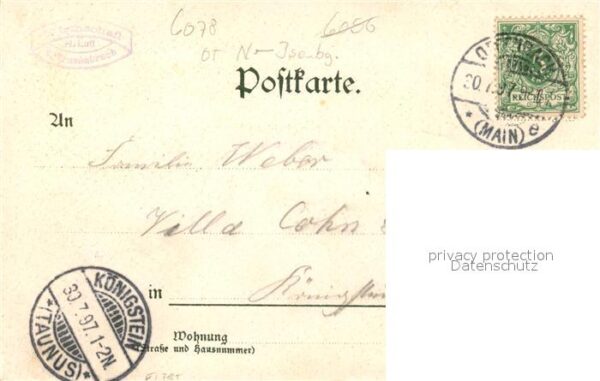 6078
6086
OT N-Isenbg.
Postkarte.
OFFENBACH
30.7.97
(MAIN) e
REICHSPOST
An
Familie Weber
Villa Cohn
in Königstein
privacy protection
Datenschutz
KÖNIGSTEIN
30.7.97.1-2N.
*(TAUNUS)*
Wohnung
(Straße und Hausnummer)